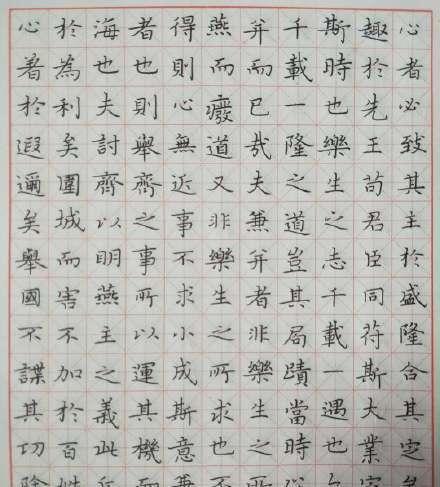 心者必致其主於盛隆合其定
趣於先王苟君臣同符斯大業
斯時也樂生之志千載一遇也
千載一隆之道豈其局蹟當時
并而已哉夫兼并者非樂生之
燕而廢道又非樂生之所求也
得則心無近事不求小成斯意
者也則舉齊之事所以運其機
海也夫討齊以明燕主之義此
於為利矣圍城而害不加於百
心著於遐邇矣舉國不謀其功